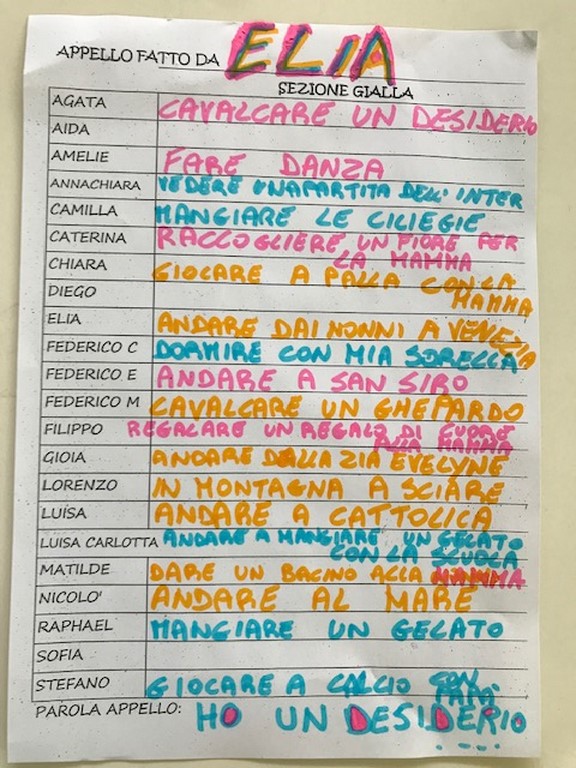 APPELLO FATTO DA ELIA
SEZIONE GIALLA
AGATA CAVALCARE UN DESIDERIO
AIDA
AMELIE FARE DANZA
ANNACHIARA VEDERE UNA PARTITA DELL'INTER
CAMILLA MANGIARE LE CILIEGIE
CATERINA RACCOGLIERE UN FIORE PER
LA MAMMA
CHIARA GIOCARE A PALLA CON LA
MAMMA
DIEGO
ELIA ANDARE DAI NONNI A VENEZIA
FEDERICO C DORMIRE CON MIA SORELLA
FEDERICO E ANDARE A SAN SIRO
FEDERICO M CAVALCARE UN GHEPARDO
FILIPPO REGALARE UN REGALO DI CUORE
ALLA MAMMA
GIOIA ANDARE DALLA ZIA EVELYNE
LORENZO IN MONTAGNA A SCIARE
LUISA ANDARE A CATTOLICA
LUISA CARLOTTA ANDARE A MANGIARE UN GELATO
CON LA SCUOLA
MATILDE DARE UN BACINO ALLA MAMMA
NICOLO' ANDARE AL MARE
RAPHAEL MANGIARE UN GELATO
SOFIA
STEFANO GIOCARE A CALCIO CON
PAPA'
PAROLA APPELLO: HO UN DESIDERIO
....